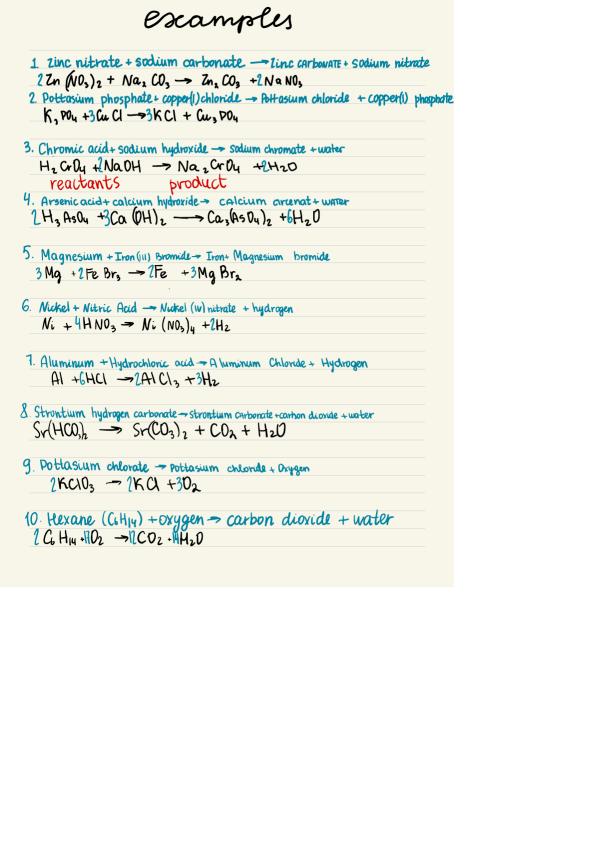 examples
1. Zinc nitrate + sodium carbonate → Zinc CARBONATE + Sodium nitrate
2Zn(NO₃)₂ + Na₂CO₃ → Zn₂CO₃ + 2NaNO₃
2. Pottasium phosphate + copper(I)chloride → Pottasium chloride + copper(I) phosphate
K₃PO₄ + 3CuCl → 3KCl + Cu₃PO₄
3. Chromic acid + sodium hydroxide → sodium chromate + water
H₂CrO₄ + 2NaOH → Na₂CrO₄ + 2H₂O
reactants product
4. Arsenic acid + calcium hydroxide → calcium arcenat + WATER
2H₃AsO₄ + 3Ca(OH)₂ → Ca₃(AsO₄)₂ + 6H₂O
5. Magnesium + Iron(III) Bromide → Iron + Magnesium bromide
3Mg + 2FeBr₃ → 2Fe + 3MgBr₂
6. Nickel + Nitric Acid → Nickel (IV) nitrate + hydrogen
Ni + 4HNO₃ → Ni(NO₃)₄ + 2H₂
7. Aluminum + Hydrochloric acid → Aluminum Chloride + Hydrogen
Al + 6HCl → 2AlCl₃ + 3H₂
8. Strontium hydrogen carbonate → strontium carbonate + carbon dioxide + water
Sr(HCO₃)₂ → Sr(CO₃)₂ + CO₂ + H₂O
9. Pottasium chlorate → Pottasium chloride + Oxygen
2KClO₃ → 2KCl + 3O₂
10. Hexane (C₆H₁₄) + oxygen → carbon dioxide + water
2C₆H₁₄ + O₂ → 12CO₂ + 14H₂O